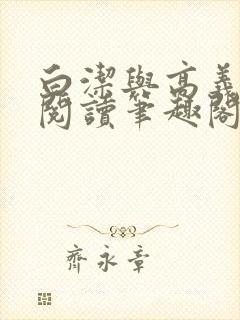 白潔與高義
閱讀筆趣閣
齊永章